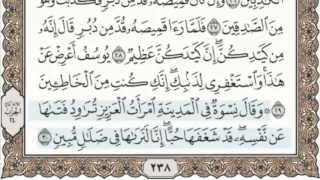 ٱلْكَٰذِبِينَ ٢٦ وَإِن كَانَ قَمِيصُهُۥ قُدَّ مِن دُبُرٍ فَكَذَبَتْ وَهُوَ
مِنَ ٱلصَّٰدِقِينَ ٢٧ فَلَمَّا رَءَا قَمِيصَهُۥ قُدَّ مِن دُبُرٍ قَالَ إِنَّهُۥ
مِن كَيْدِكُنَّ إِنَّ كَيْدَكُنَّ عَظِيمٌ ٢٨ يُوسُفُ أَعْرِضْ عَنْ
هَٰذَا وَٱسْتَغْفِرِى لِذَنۢبِكِ إِنَّكِ كُنتِ مِنَ ٱلْخَاطِـِٔينَ
٢٩ ۞ وَقَالَ نِسْوَةٌ فِى ٱلْمَدِينَةِ ٱمْرَأَتُ ٱلْعَزِيزِ تُرَٰوِدُ فَتَىٰهَا
عَن نَّفْسِهِۦ قَدْ شَغَفَهَا حُبًّا إِنَّا لَنَرَىٰهَا فِى ضَلَٰلٍ مُّبِينٍ ٣٠
الحزب
٢٤
٢٣٨